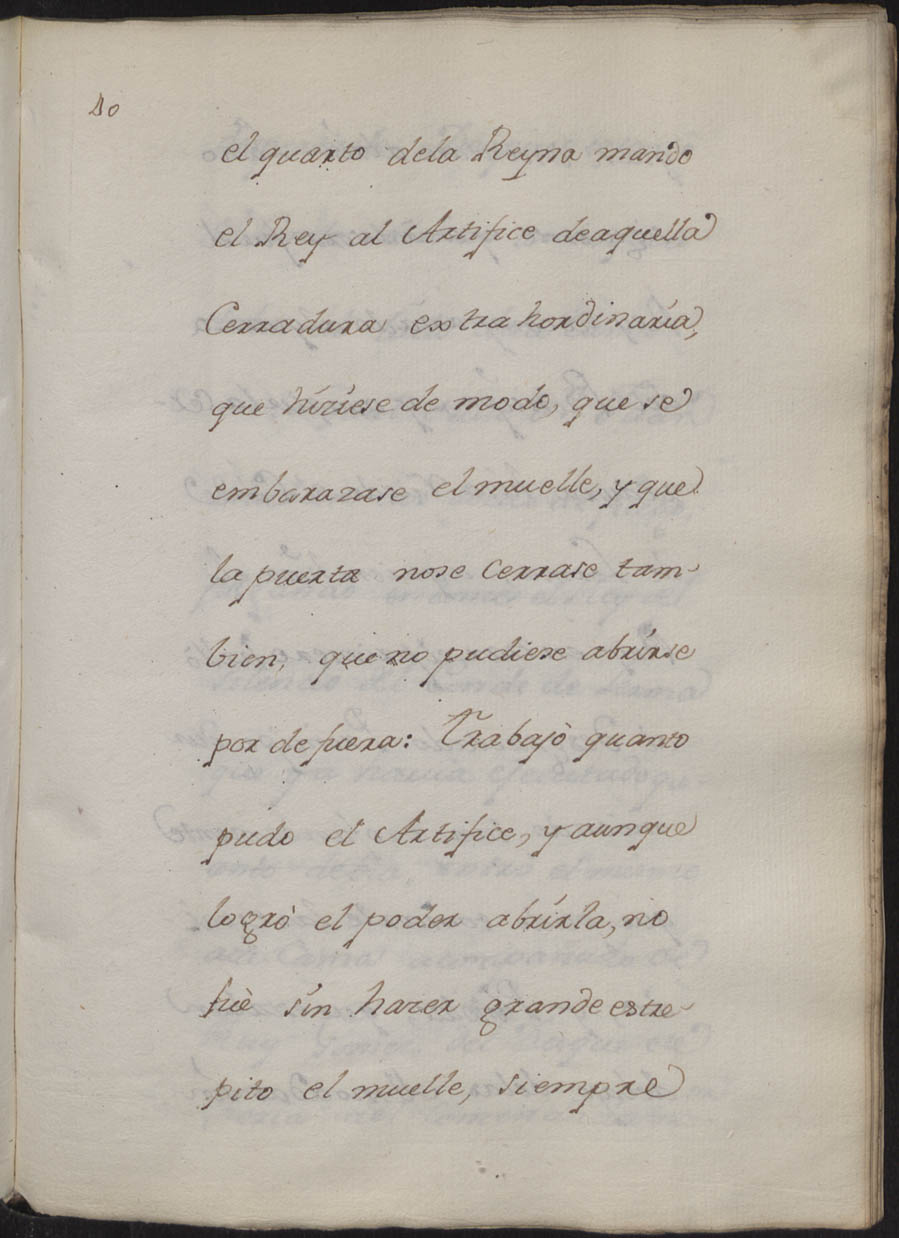 10
el quarto dela Reyna mando
el Rey al Artifice deaquella
Cerradura extrahordinaria,
que hiziese de modo, que se
embarazase el muelle, y que
la puerta nose cerrase tam-
bien, que no pudiese abrirse
por defuera: Trabajò quanto
pudo el Artifice, y aunque
logrò el poder abrirla, no
fuè sin hazer grande estre-
pito el muelle, siempre